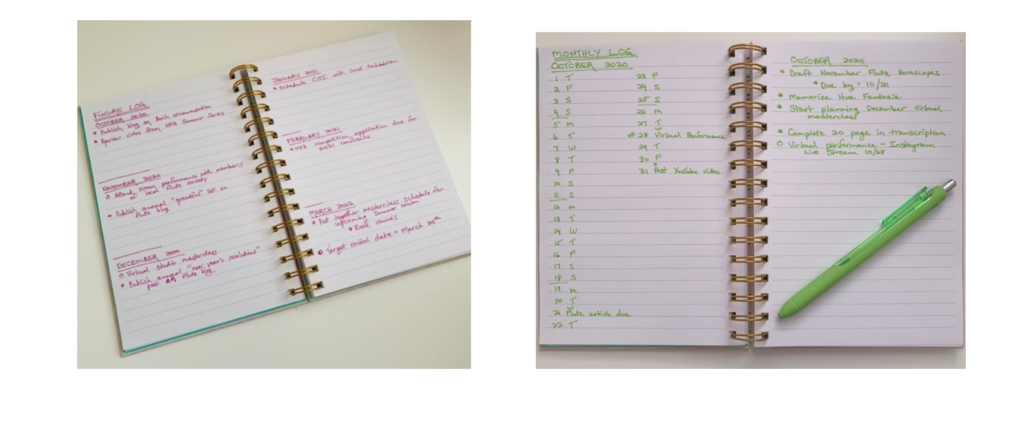 FUTURE LOG
OCTOBER 2020
• Publish blog on Bach ornamentation
• Review video from NFA Summer Series
NOVEMBER 2020
o Attend Zoom performance with members
of local flute society
• Publish annual "grateful" list on
flute blog
DECEMBER 2020
o Virtual studio masterclass
• Publish annual "new year's resolutions"
post on flute blog
JANUARY 2021
• Schedule COA with local technician
FEBRUARY 2021
• NFA competition application due for
MARCH
• Put together masterclass schedule for
upcoming Summer season
• Book venues
o Target recital date = March
MONTHLY LOG
OCTOBER 2020
1 T
2 F
3 S
4 S
5 M
6 T
7 W
8 T
9 F
10 S
11 S
12 M
13 T
14 W
15 T
16 F
17 S
18 S
19 M
20 T
21 Flute article due
22 T
23 F
24 S
25 S
26 M
27 T
28 Virtual Performance
29 T
30 F
31 Post YouTube Video
OCTOBER 2020
• Draft November Flute Horoscopes
• Due by 10/21
• Memorize Hue Fantasie
• Start planning December virtual
masterclass
• Complete 20 page in transcription
o Virtual performance - Instagram
Live Stream 10/28